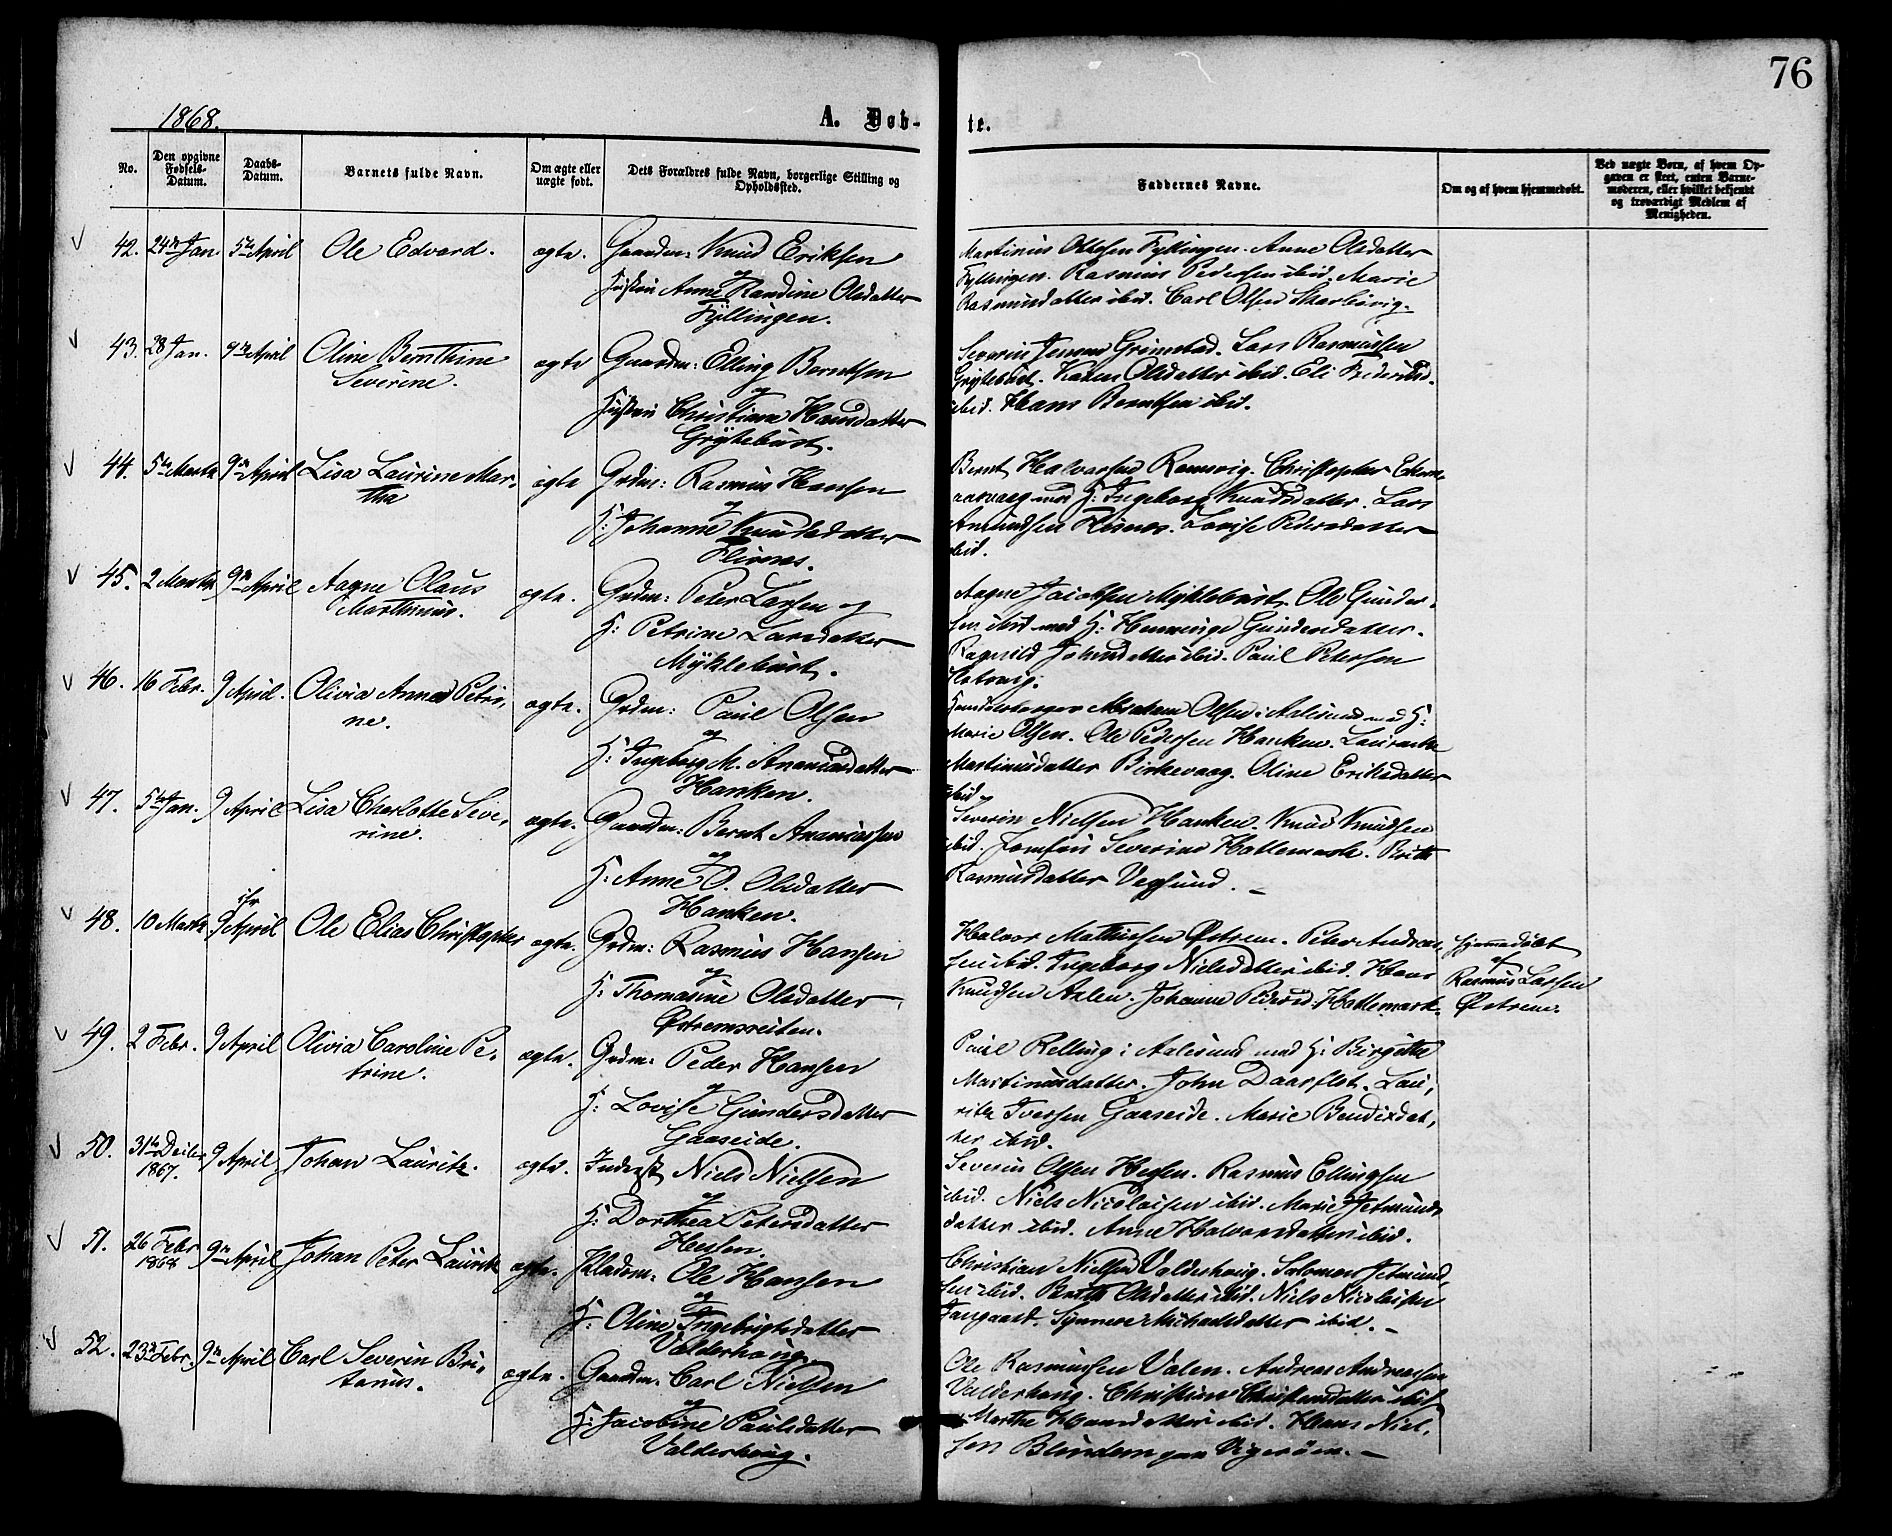 76
1868.
A. Døb-
te.
No.
Den opgivne Fødsels-Datum.
Daabs-Datum.
Barnets fulde Navn.
Om ægte eller uægte født.
Dets Forældres fulde Navn, borgerlige Stilling og Opholdssted.
Faddernes Navne.
Om og af hvem hjemmedøbt.
Ved uægte Børn, af hvem Op-
gaven er skeet, enten Barne-
moderen, eller hvilket bekjendt
og troværdigt Medlem af
Menigheden.
42. 24de Jan. 5te April Ole Edvard. ægte. Gaardm: Knud Eriksen
og
Hustru Anne Randine Olsdatter
Fyllingen.
Martinus Ottesen Fyllingen. Anne Olsdatter
Fyllingen. Rasmus Pedersen ibid. Marie
Rasmusdatter ibid. Carl Olsen
43. 28 Jan. 9de April Oline Bernthine
Severine.
ægte Gaardm: Elling Berntsen
og
Hustru Christiane Hansdatter
Grytebust.
Severin Jensen Grimstad. Lars Rasmussen
Grytebust. Karen Olsdatter ibid. Eli
ibid. Hans Berntsen ibid.
44. 5te Marts 9de April Lisa Laurine Mar-
tha
ægte Grdm: Rasmus Hansen
og
H: Johanne Knudsdatter
Flisnes.
Bernt Halvorsen Ramsvig. Christopher
med H: Ingeborg Knudsdatter. Lars
Amundsen Flisnes. Lovise Pedersdatter
ibid.
45. 2 Marts 9de April Aagne Olaus
Marthinus.
ægte. Grdm: Peter Larsen og
H: Petrine Larsdatter
Myklebust.
Aagne Jacobsen Myklebust. Ole Gunder-
sen ibid med H: Henninge Gundersdatter.
Ragnild Johnsdatter ibid. Paul Petersen
46. 16 Febr. 9 April. Olivia Anna Petri-
ne.
ægte. Grdm: Paul Olsen
og
H: Ingeborg M. Ananiasdatter
Hanken.
Abraham Olsen i Aalesund med H:
Marie Olsen. Ole Pedersen Hanken.
Martinusdatter Birkevaag. Oline Eriksdatter
ibid.
47. 5te Jan. 9 April Lisa Charlotte Seve-
rine.
ægte. Gaardm: Bernt Ananiassen
og
H: Anne O. Olsdatter
Hanken.
Severin Nielsen Hanken. Knud Knudsen
ibid. Jomfru Severine Hatlemark. Brith
Rasmusdatter Vegsund.
48. 10 Marts 9 April Ole Elias Christopher ægte. Grdm: Rasmus Hansen
og
H: Thomasine Olsdatter
Østremsreiten.
Halvor Mathiesen Østrem. Peter Andreas-
sen ibid. Ingeborg Nielsdatter ibid. Hans
Knudsen Aslen. Johanne Pedersd: Hatlemark.
hjemmedøbt
af
Rasmus Larsen
Østrem.
49. 2 Febr. 9 April Olivia Caroline Pe-
trine.
ægte. Grdm: Peder Hansen
og
H: Lovise Gundersdatter
Gaaseide.
Paul Relling i Aalesund med H: Birgitha
Martinusdatter. John Daarflot. Lau-
ritz Iversen Gaaseide. Marie Bendixdat-
ter ibid.
50. 31te Decbr
1867.
9 April Johan Lauritz. ægte. Inderst Niels Nielsen
og
H: Dorthea Petersdatter
Hessen.
Severin Olsen Hessen. Rasmus Ellingsen
ibid. Niels Nicolaisen ibid. Marie Jetmunds-
datter ibid. Anne Halvorsdatter ibid.
51. 26 Febr
1868
9de April Johan Peter Lauritz ægte. Pladsm: Ole Hansen
og
H: Oline Ingebrigtsdatter
Valderhoug
Christian Nielsen Valderhoug. Salomon Jetmund-
sen ibid. Berith Olsdatter ibid. Niels Nicolaisen
Synnøve Michaelsdatter ibid.
52. 23de Febr. 9de April Carl Severin Bri-
tanus.
ægte. Gaardm: Carl Nielsen
og
H: Jacobine Paulsdatter
Valderhoug.
Ole Rasmussen Valen. Andreas Andreassen
Valderhoug. Christiane Christensdatter ibid.
Marthe Hansdatter ibid. Hans Niel-
sen Blindem paa Vigerøen.